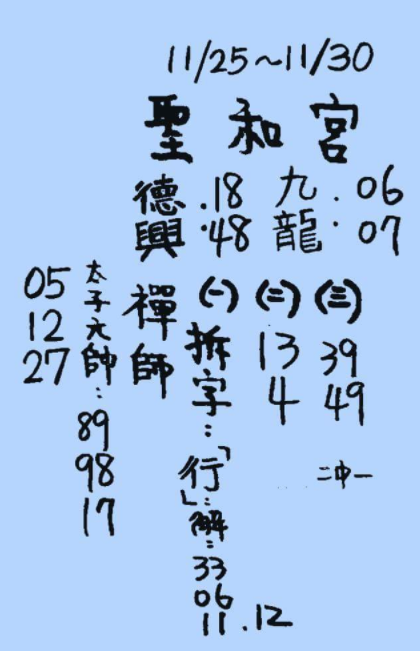 11/25~11/30
聖和宮
德興 .18 .48
九龍 .06 .07
禪師
(一) 拆字:「行」:解:33 06 11.12
(二) 13 4
(三) 39 49
二中一
太子元帥:89 98 17
05 12 27